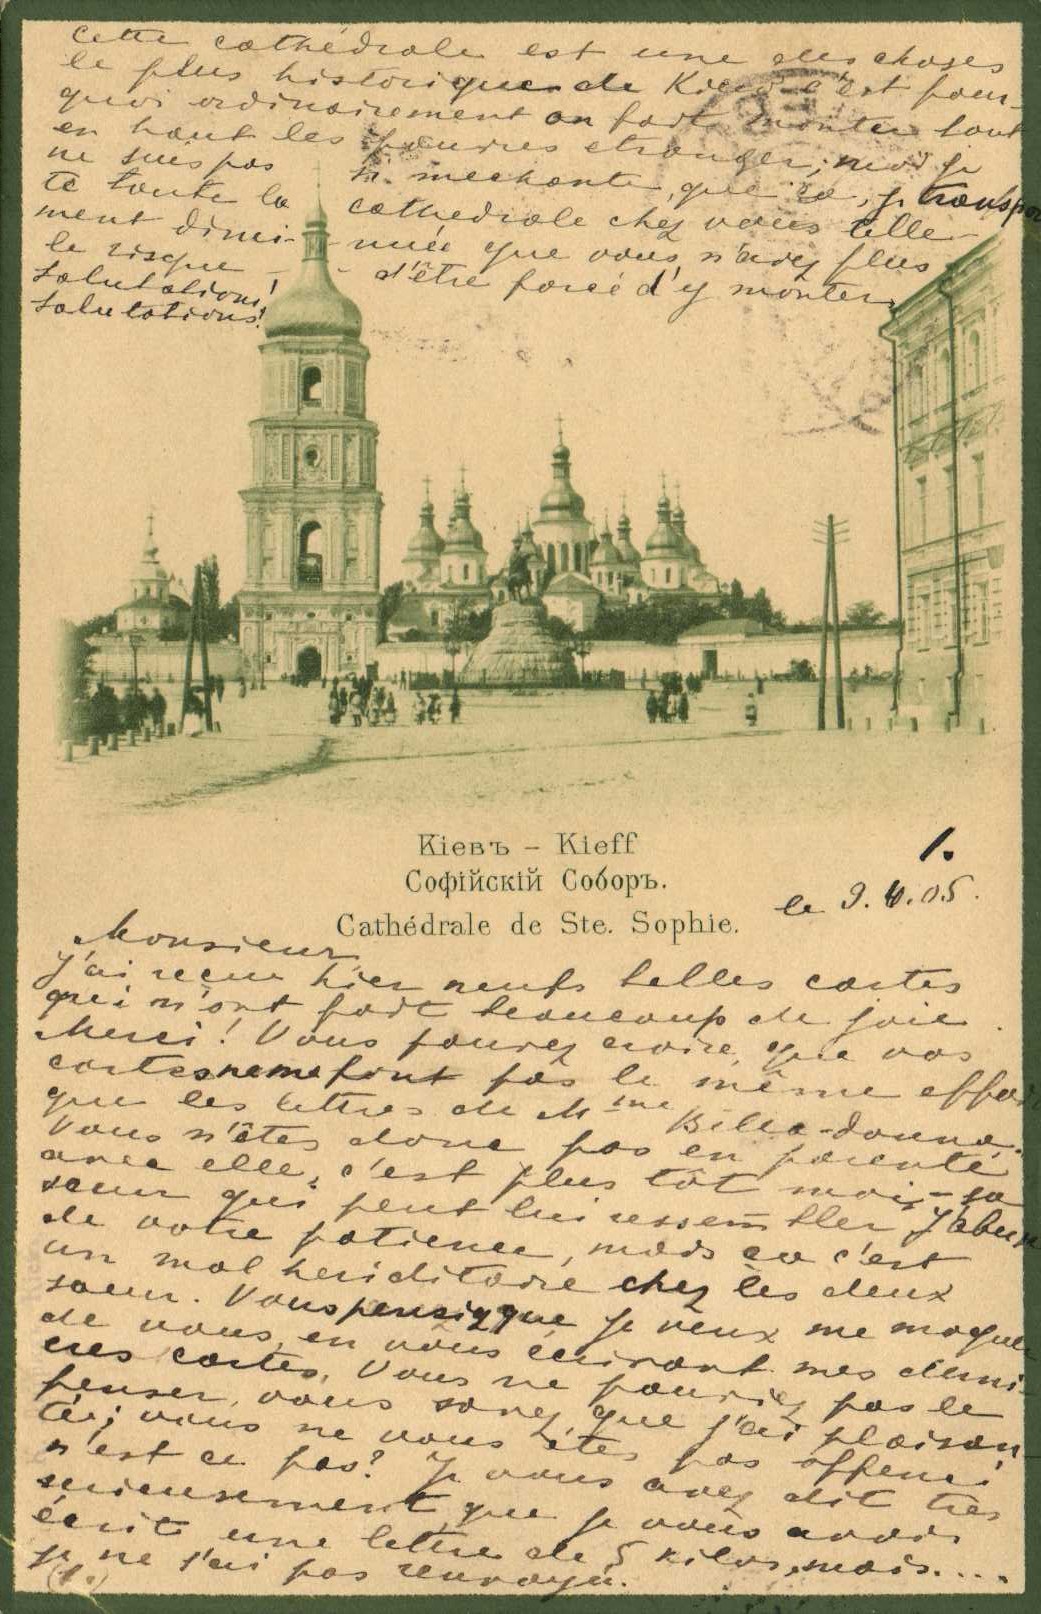 cette cathédrale est une des choses
le plus historiques de Kieff c'est pour-
quoi ordinairement on fait monter tout
en haut les pauvres etranger; moi je
ne suis pas si mechante que ça, je transpor
te toute la cathedrale chez vous telle-
ment dimi- nuée que vous n'avez plus
le risque - - d'être forcé d'y monter
Salutations!
Salutations!
Кіевъ – Kieff
Софійскій Соборъ.
Cathédrale de Ste. Sophie.
1.
le 9.4.05.
Monsieur
J'ai reçue hier neufs belles cartes
qui m'ont fait beaucoup de joie.
Merci! Vous pouvez croire, que vos
cartes ne me font pas le même effet
que les lettres de Mme Bella-donna.
Vous n'êtes donc pas en parenté
avec elle, c'est plus tôt moi, - sa
soeur qui peut lui ressembler J'abuse
de votre patience, mais ça c'est
un mal heriditaire chez les deux
soeur. Vous pensiez que je veux me moquer
de vous, en vous écrivant mes derni-
eres cartes. Vous ne pouviez pas le
penser, vous savez, que j'ai plaisan-
té; vous ne vous êtes pas offensé
n'est ce pas? Je vous avez dit très
serieusement, que je vous avais
écrit une lettre de 5 kilos, mais....
je ne l'ai pas renvoyé.
(1.)